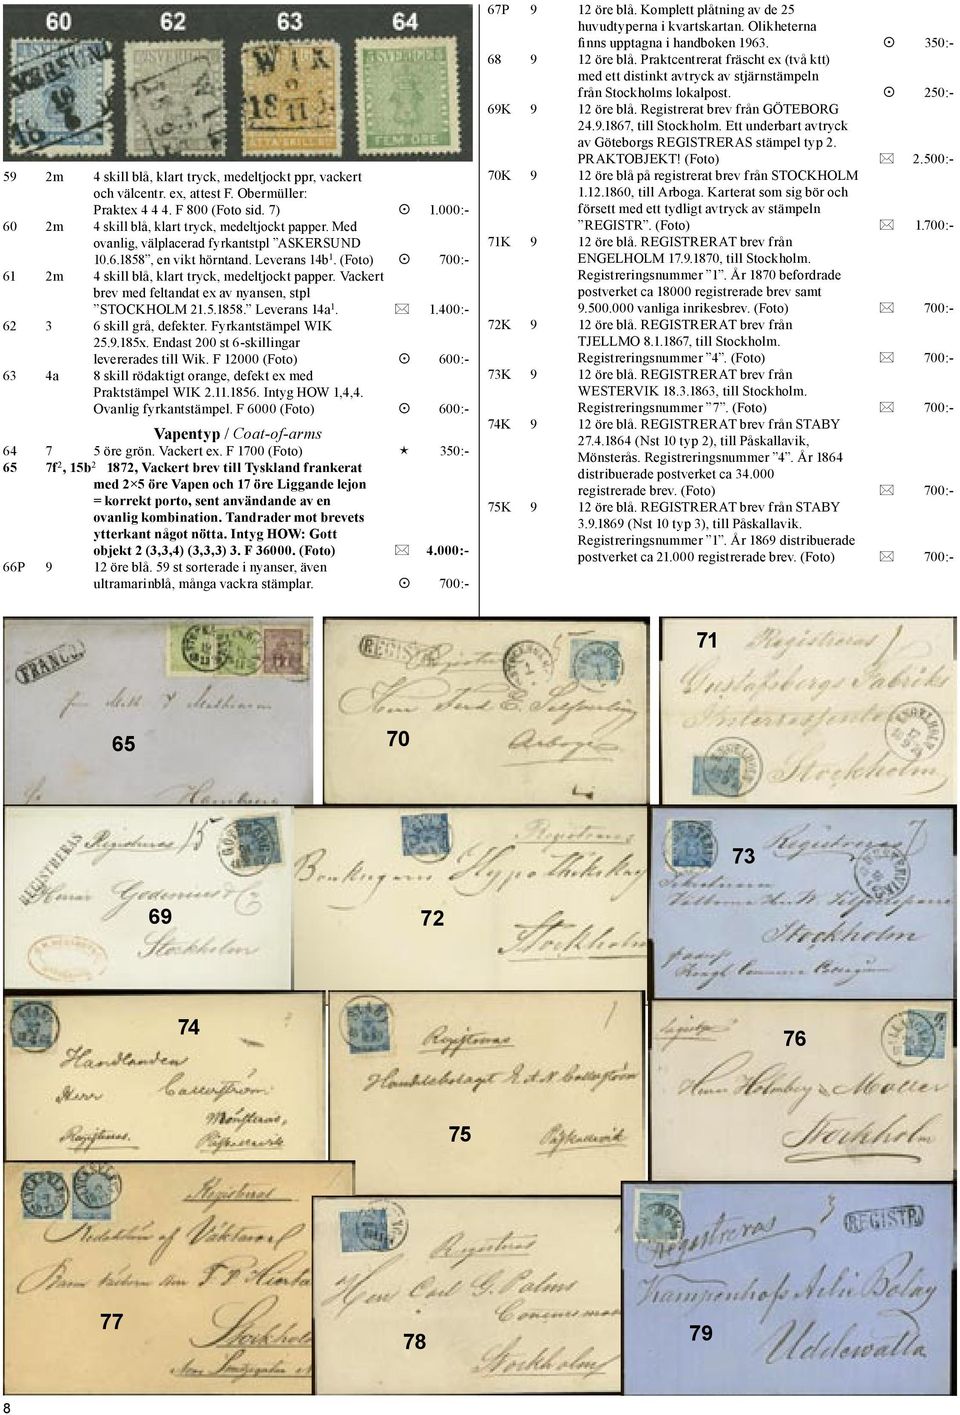 60 62 63 64
FEM ÖRE
59 2m 4 skill blå, klart tryck, medeltjockt ppr, vackert
och välcentr. ex, attest F. Obermüller:
Praktex 4 4 4. F 800 (Foto sid. 7) ☉ 1.000:-
60 2m 4 skill blå, klart tryck, medeltjockt papper. Med
ovanlig, välplacerad fyrkantstpl ”ASKERSUND
10.6.1858”, en vikt hörntand. Leverans 14b¹. (Foto) ☉ 700:-
61 2m 4 skill blå, klart tryck, medeltjockt papper. Vackert
brev med feltandat ex av nyansen, stpl
”STOCKHOLM 21.5.1858.” Leverans 14a¹. ✉ 1.400:-
62 3 6 skill grå, defekter. Fyrkantstämpel WIK
25.9.185x. Endast 200 st 6-skillingar
levererades till Wik. F 12000 (Foto) ☉ 600:-
63 4a 8 skill rödaktigt orange, defekt ex med
Praktstämpel WIK 2.11.1856. Intyg HOW 1,4,4.
Ovanlig fyrkantstämpel. F 6000 (Foto) ☉ 600:-
Vapentyp / Coat-of-arms
64 7 5 öre grön. Vackert ex. F 1700 (Foto) ★ 350:-
65 7f², 15b² 1872, Vackert brev till Tyskland frankerat
med 2×5 öre Vapen och 17 öre Liggande lejon
= korrekt porto, sent användande av en
ovanlig kombination. Tandrader mot brevets
ytterkant något nötta. Intyg HOW: Gott
objekt 2 (3,3,4) (3,3,3) 3. F 36000. (Foto) ✉ 4.000:-
66P 9 12 öre blå. 59 st sorterade i nyanser, även
ultramarinblå, många vackra stämplar. ☉ 700:-
67P 9 12 öre blå. Komplett plåtning av de 25
huvudtyperna i kvartskartan. Olikheterna
finns upptagna i handboken 1963. ☉ 350:-
68 9 12 öre blå. Praktcentrerat fräscht ex (två ktt)
med ett distinkt avtryck av stjärnstämpeln
från Stockholms lokalpost. ☉ 250:-
69K 9 12 öre blå. Registrerat brev från GÖTEBORG
24.9.1867, till Stockholm. Ett underbart avtryck
av Göteborgs REGISTRERAS stämpel typ 2.
PRAKTOBJEKT! (Foto) ✉ 2.500:-
70K 9 12 öre blå på registrerat brev från STOCKHOLM
1.12.1860, till Arboga. Karterat som sig bör och
försett med ett tydligt avtryck av stämpeln
”REGISTR”. (Foto) ✉ 1.700:-
71K 9 12 öre blå. REGISTRERAT brev från
ENGELHOLM 17.9.1870, till Stockholm.
Registreringsnummer ”1”. År 1870 befordrade
postverket ca 18000 registrerade brev samt
9.500.000 vanliga inrikesbrev. (Foto) ✉ 700:-
72K 9 12 öre blå. REGISTRERAT brev från
TJELLMO 8.1.1867, till Stockholm.
Registreringsnummer ”4”. (Foto) ✉ 700:-
73K 9 12 öre blå. REGISTRERAT brev från
WESTERVIK 18.3.1863, till Stockholm.
Registreringsnummer ”7”. (Foto) ✉ 700:-
74K 9 12 öre blå. REGISTRERAT brev från STABY
27.4.1864 (Nst 10 typ 2), till Påskallavik,
Mönsterås. Registreringsnummer ”4”. År 1864
distribuerade postverket ca 34.000
registrerade brev. (Foto) ✉ 700:-
75K 9 12 öre blå. REGISTRERAT brev från STABY
3.9.1869 (Nst 10 typ 3), till Påskallavik.
Registreringsnummer ”1”. År 1869 distribuerade
postverket ca 21.000 registrerade brev. (Foto) ✉ 700:-
FRANCO
65
Hamburg
REGISTR
Arboga
70
71
Registreras
Gustafsbergs Fabriks
Intressenter
Stockholm
REGISTRERAS
Registreras 15
Stockholm
69
Registreras
Stockholm
72
73
Registreras 7
Stockholm
74
Handlanden
Herr
Mönsterås,
Påskallavik
Registreras.
75
Registreras
Påskallavik
76
Stockholm
77
Registreras
Stockholm
78
Registreras
Herr Carl G. Palms
Stockholm
79
Registreras 3
REGISTR.
Uddewalla
8